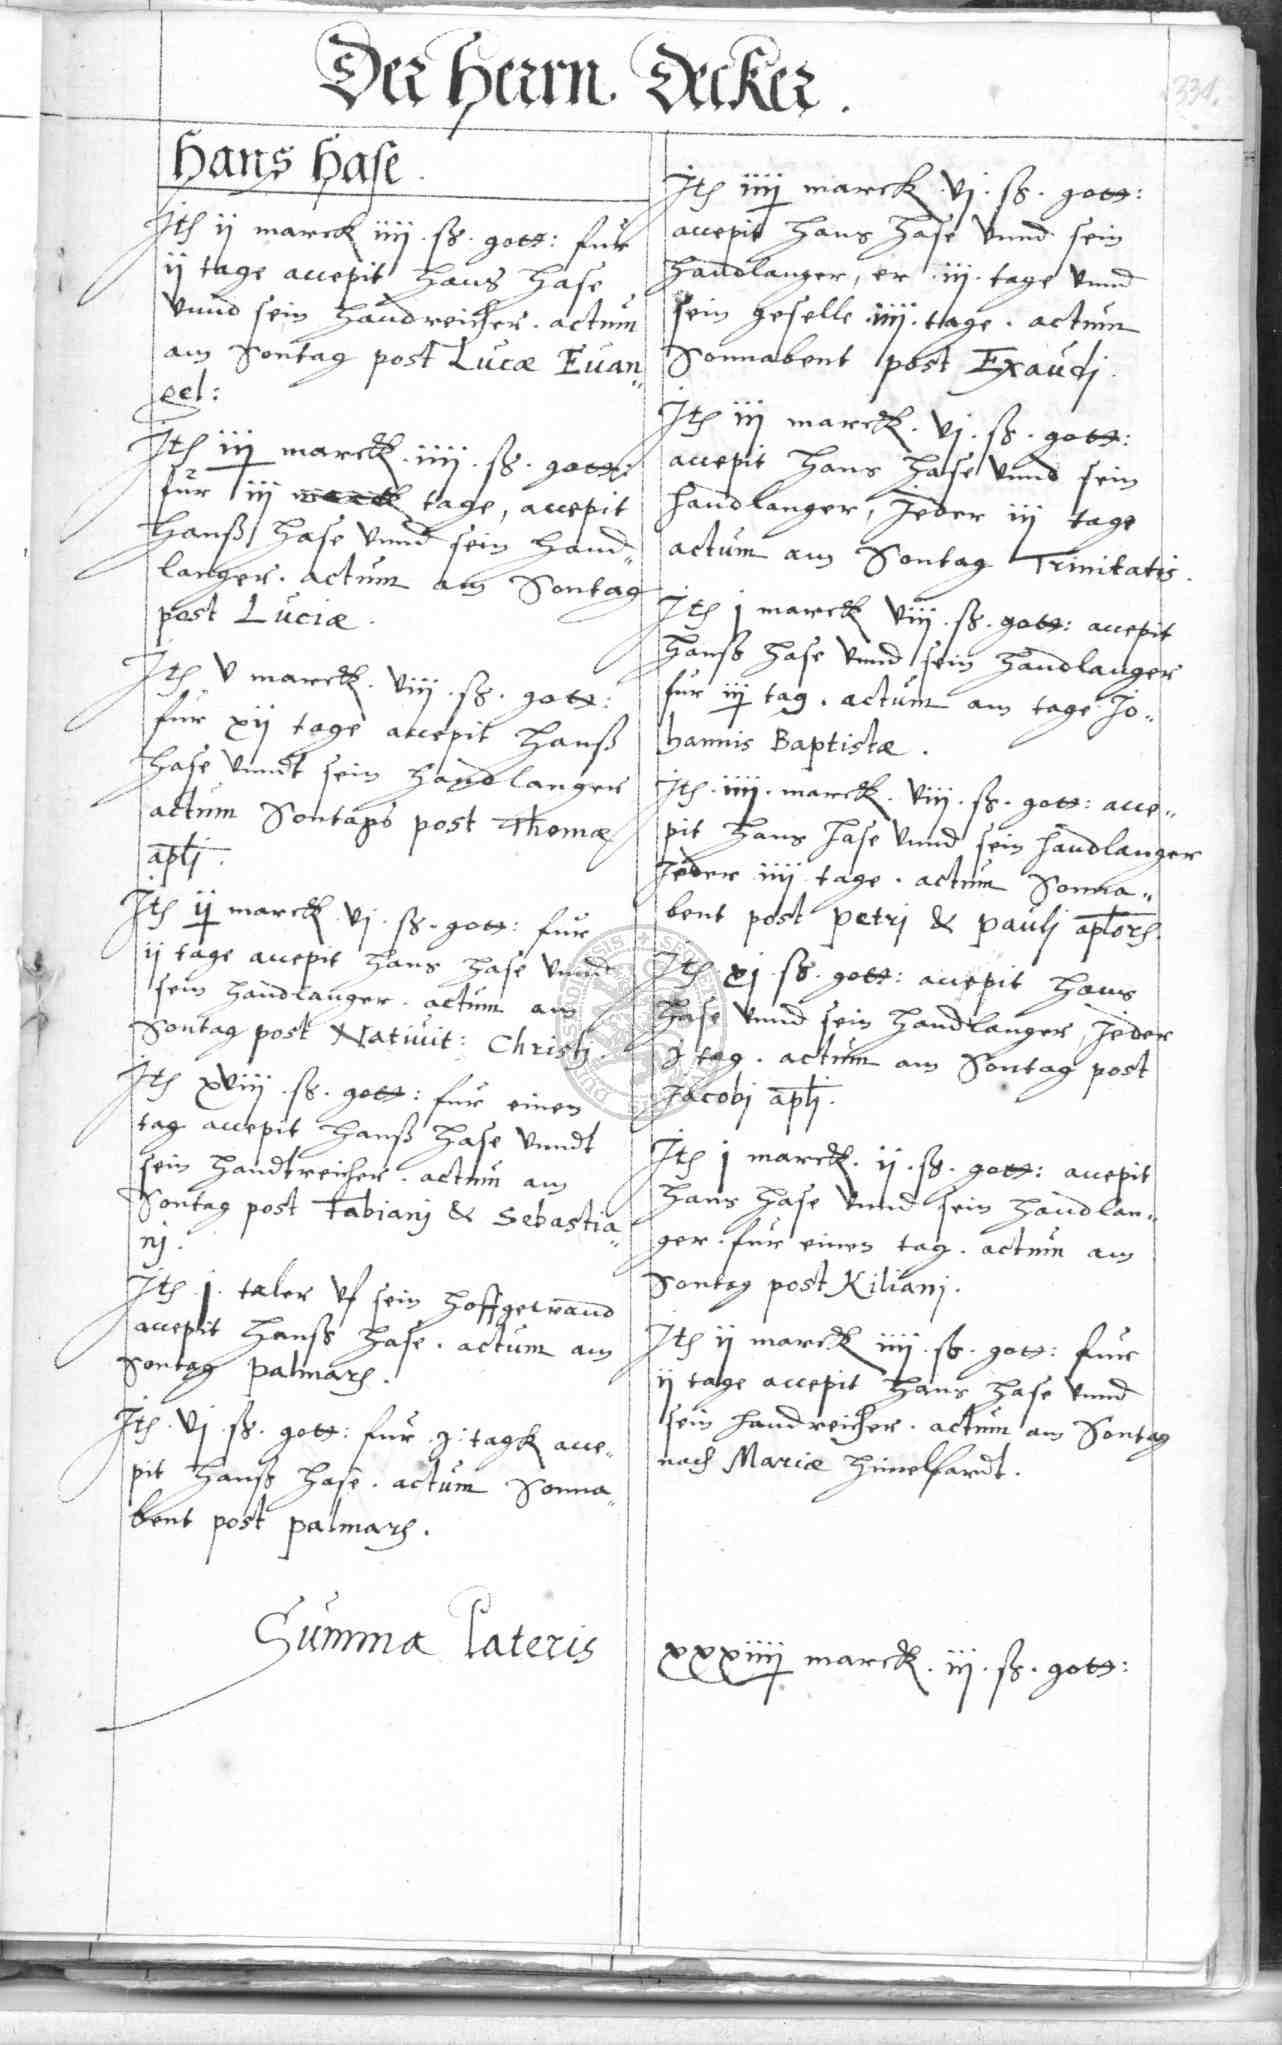 Der Herrn. Decker.
331.
Hans Hase.
Ith ij marck iiij. ß. gott: fur
ij tage accepit Hans Hase
vnnd sein handreicher. actum
am Sontag post Lucæ Euan„
gel:
Ith iij marck. iiij. ß. gott:
fur iij marck tage, accepit
Hanß Hase vnnd sein hand„
langer. actum am Sontag
post Luciæ.
Ith v marck. viij. ß. gott:
fur xij tage accepit Hanß
Hase vnndt sein handlanger
actum Sontags post Thomæ
apłi.
Ith ij marck vj. ß. gott: fur
ij tage accepit Hans Hase vnnd
sein handlanger. actum am
Sontag post Nativit: Christj.
Ith xviij. ß. gott: fur einen
tag accepit Hanß Hase vnndt
sein handtreicher. actum am
Sontag post Fabianj & Sebastia„
nj.
Ith. j. taler vf sein hoffgewand
accepit Hanß Hase. actum am
Sontag palmarꝫ.
Ith. vj. ß. gott: fur j. tagk acce„
pit Hanß Hase. actum Sonna„
bent post palmarꝫ.
Ith iiij marck vj. ß. gott:
accepit Hans Hase vnnd sein
handlanger, er. iij. tage vnnd
sein geselle iiij. tage. actum
Sonnabent post Exaudj.
Ith iij marck. vj. ß. gott:
accepit Hans Hase vnnd sein
handlanger, Jeder iij tage
actum am Sontag Trinitatis.
Ith j marck viij. ß. gott: accepit
Hanß Hase vnnd sein handlanger
fur iij tag. actum am tage Jo„
hannis Baptistæ.
Ith. iiij. marck. viij. ß. gott: acce„
pit Hans Hase vnnd sein handlanger
Jeder iiij tage. actum Sonna„
bent post petrj & paulj apłorꝫ.
Ith xj. ß. gott: accepit Hans
Hase vnnd sein handlanger, Jeder
j tag. actum am Sontag post
Jacobj apłi.
Ith j marck. ij. ß. gott: accepit
Hans Hase vnnd sein handlan„
ger. fur einen tag. actum am
Sontag post Kilianj.
Ith ij marck iiij. ß. gott: fur
ij tage accepit Hans Hase vnnd
sein handreicher. actum am Sontag
nach Mariæ himelfardt.
Summa Lateris
xxxiiij marck. iij. ß. gott: